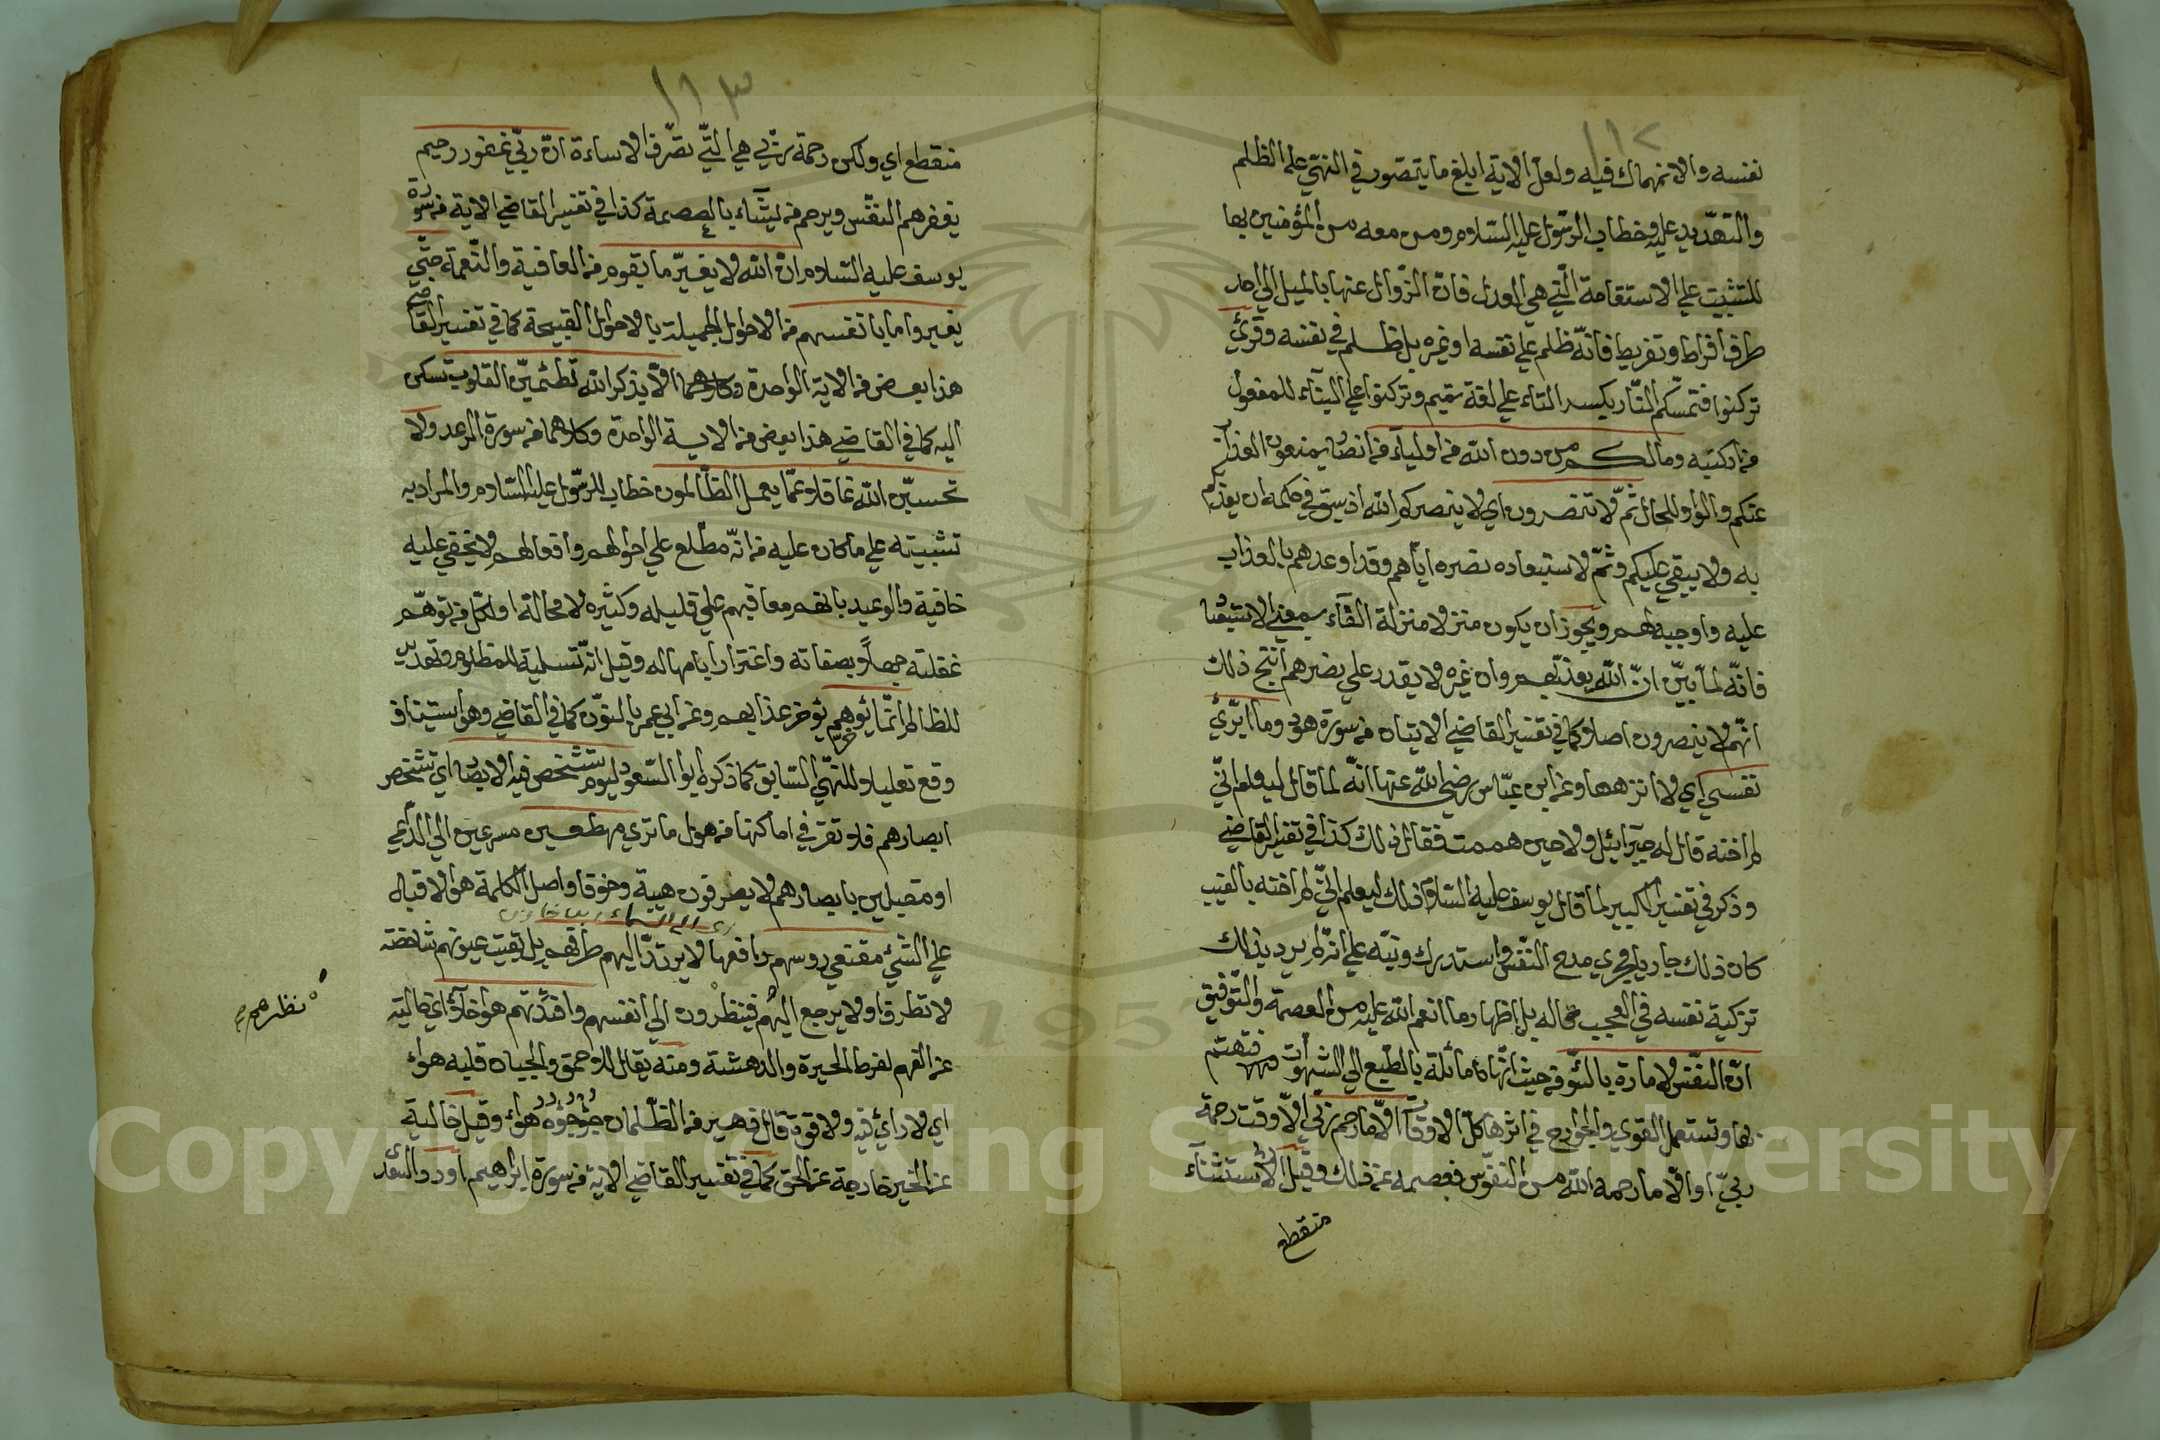 ١١٢
نفسه والانهماك فيه ولعل الاية ابلغ ما يتصور في النهي على الظلم
والتهديد عليه وخطاب الرسول عليه السلام ومن معه من المؤمنين بها
للتثبيت على الاستقامة التي هي العدل فان الزوال عنها بالميل الى احد
طرفي افراط وتفريط فانه ظلم على نفسه او غيره بل ظلم في نفسه وقرئ
تركنوا فتمسكم النار بكسر التاء على لغة تميم وتركنوا على البناء للمفعول
من اركنه وما لكم من دون الله من اولياء من انصار يمنعون العذاب
عنكم والواو للحال ثم لا تنصرون اي لا ينصركم الله اذ سبق في حكمه ان يعذبكم
به ولا يبقي عليكم وثم لاستبعاده نصره اياهم وقد اوعدهم بالعذاب
عليه واوجبه لهم ويجوز ان يكون منزلا منزلة الفاء بمعنى الاستبعاد
فانه لما بين ان الله يعذبهم وان غيره لا يقدر على نصرهم انتج ذلك
انهم لا ينصرون اصلا كما في تفسير القاضي الايتان من سورة هود وما ابرئ
نفسي اي لا انزهها وعن ابن عباس رضي الله عنها انه لما قال ليعلم اني
لم اخنه قال له جبرائيل ولا حين هممت فقال ذلك كذا في تفسير القاضي
وذكر في تفسير الكبير لما قال يوسف عليه السلام ذلك ليعلم اني لم اخنه بالغيب
كان ذلك جاريا مجرى مدح النفس واستدرك ونبه على انه لم يرد بذلك
تزكية نفسه في العجب بل اظهار ما انعم الله عليه من العصمة والتوفيق
ان النفس لامارة بالسوء من حيث انها مائلة بالطبع الى الشهوات فتهتم
بها وتستعمل القوى والجوارح في اثرها كل الاوقات الا ما رحم ربي الا وقت رحمة
ربي او الا ما رحمه الله من النفوس فعصمه عن ذلك وقيل الاستثناء
منقطع
١١٣
منقطع اي ولكن رحمة ربي هي التي تصرف الاساءة ان ربي غفور رحيم
يغفر هم النفس ويرحم من يشاء بالعصمة كذا في تفسير القاضي الاية من سورة
يوسف عليه السلام ان الله لا يغير ما بقوم من العافية والنعمة حتى
يغيروا ما بانفسهم من الاحوال الجميلة بالاحوال القبيحة كما في تفسير القاضي
هذا بعض من الاية الواحدة وكلاهما الا بذكر الله تطمئن القلوب تسكن
اليه كما في القاضي هذا بعض من الاية الواحدة وكلاهما من سورة الرعد ولا
تحسبن الله غافلا عما يعمل الظالمون خطاب للرسول عليه السلام والمراد به
تثبيته على ما كان عليه من انه مطلع على احوالهم وافعالهم لا يخفى عليه
خافية والوعيد بانهم معاقبهم على قليله وكثيره لا محالة او لكل من توهم
غفلته جهلا بصفاته واغترارا بامهاله وقيل انه تسلية للمظلوم وتهديد
للظالم انما يؤخرهم يؤخر عذابهم وعن ابي عمر بالنون كما في القاضي وهو استيناف
وقع تعليلا للنهي السابق كما ذكره ابوا السعود ليوم تشخص فيه الابصار اي تشخص
ابصارهم فلا تقر في اماكنها من هول ما ترى مهطعين مسرعين الى الداعي
او مقبلين بابصارهم لا يطرفون هيبة وخوفا واصل الكلمة هو الاقبال
على الشئ مقنعي رؤسهم رافعها لا يرتد اليهم طرفهم بل بقيت عيونهم شاخصة
لا تطرف او لا يرجع اليهم فينظرون الى انفسهم وافئدتهم هواء خلاء اي خالية
عن الفهم لفرط الحيرة والدهشة ومنه يقال للاحمق والجبان قلبه هواء
اي لا رأي فيه ولا قوة قال زهير من الظلمان جؤجؤه هواء وقيل خالية
عن الخير خارجة عن الحق كما في تفسير القاضي الاية من سورة ابراهيم اورد السعد
نظرهم
Copyright © King Saud University
195